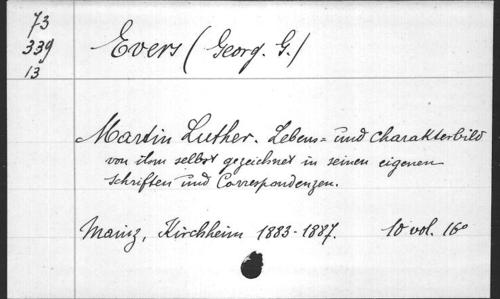 73
339
13
Evers (Georg. G.)
Martin Luther. Lebens= und Charakterbild
von ihm selbst gezeichnet in seinen eigenen
Schriften und Correspondenzen.
Mainz, Kirchheim 1883-1887. 10 vol. 16°